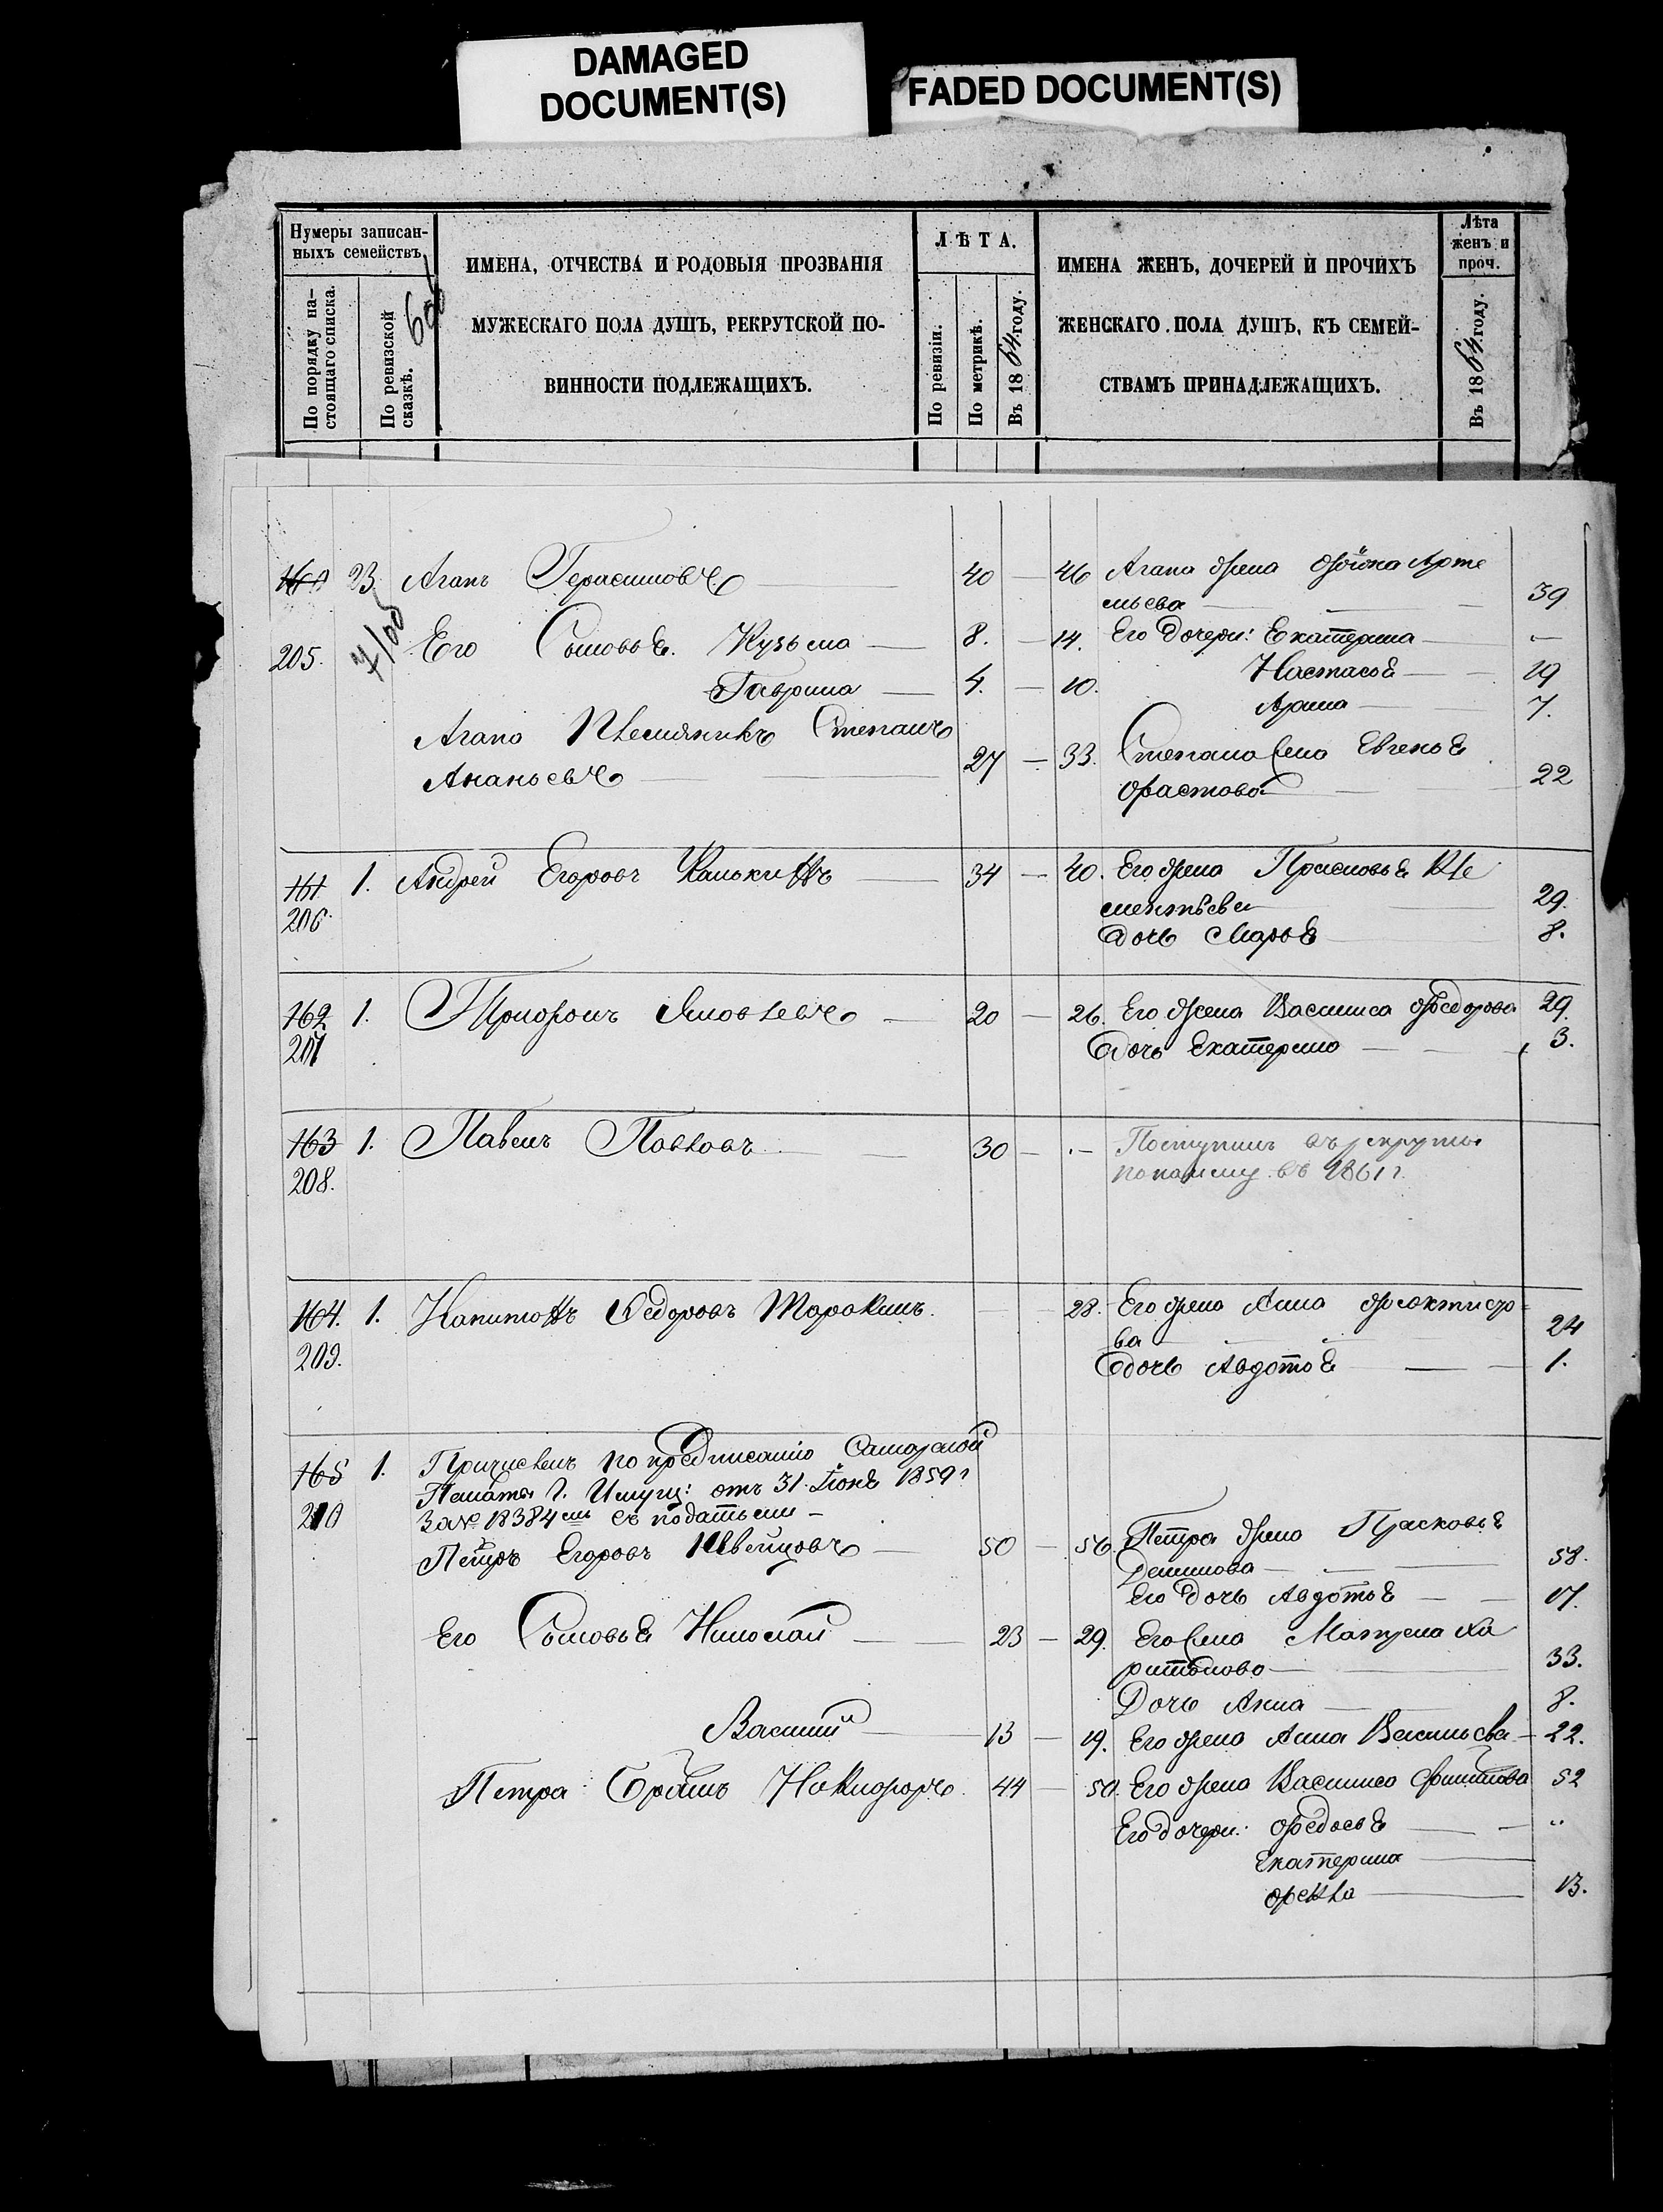 DAMAGED
DOCUMENT(S)
FADED DOCUMENT(S)
Нумеры записан-
ныхъ семействъ.
По порядку на-
стоящаго списка.
По ревизской
сказкѣ.
ИМЕНА, ОТЧЕСТВА И РОДОВЫЯ ПРОЗВАНІЯ
МУЖЕСКАГО ПОЛА ДУШЪ, РЕКРУТСКОЙ ПО-
ВИННОСТИ ПОДЛЕЖАЩИХЪ.
ЛѢТА.
По ревизіи.
По метрикѣ.
Въ 1864 году.
ИМЕНА ЖЕНЪ, ДОЧЕРЕЙ И ПРОЧИХЪ
ЖЕНСКАГО ПОЛА ДУШЪ, КЪ СЕМЕЙ-
СТВАМЪ ПРИНАДЛЕЖАЩИХЪ.
Лѣта
женъ и
проч.
Въ 1864 году.
160 23. Агапъ Герасимовъ — 40 — 46 Агапа жена Арте
мьева — 39
205. Его Сыновья. Кузьма — 8. — 14. Его Дочери: Екатерина —
Гаврила — 4. — 10. Настасья — 19
Арина — 7.
Агапа Племянникъ Степанъ
Ананьевъ — 27 — 33. Степана жена Евгенья
Фастова — 22
161 1. Андрей Егоровъ — 34 — 40. Его жена Прасковья Кле
ментьева — 29.
206. Дочь Марья — 8.
162 1. Трифонъ Яковлевъ — 20 — 26. Его жена Василиса Федорова 29.
207 Дочь Екатерина — 3.
163 1. Павелъ Павловъ — 30 — Поступилъ въ рекруты
по найму въ 1861 г.
208.
164. 1. Капитонъ Федоровъ Торокинъ. 28. Его жена Анна Феоктисто
ва — 24
209. дочь Авдотья — 1.
165 1. Причисленъ по предписанію Самарской
Палаты Г. Имущ: отъ 31 1859 г
210 За № 18384 съ податьми —
Петръ Егоровъ Швецовъ — 50 — 56. Петра жена Прасковья
— 58.
Его Дочь Авдотья — 17.
Его Сыновья Николай — 23 — 29. Его жена Матрена Ха
ритонова — 33.
Дочь Анна — 8.
Василий — 13 — 19. Его жена Анна Васильева — 22.
Петра Братъ Никифоръ. 44 — 50. Его жена Василиса Филипова 52
Его дочери: Федосья — "
Екатерина —
Фекла — 13.